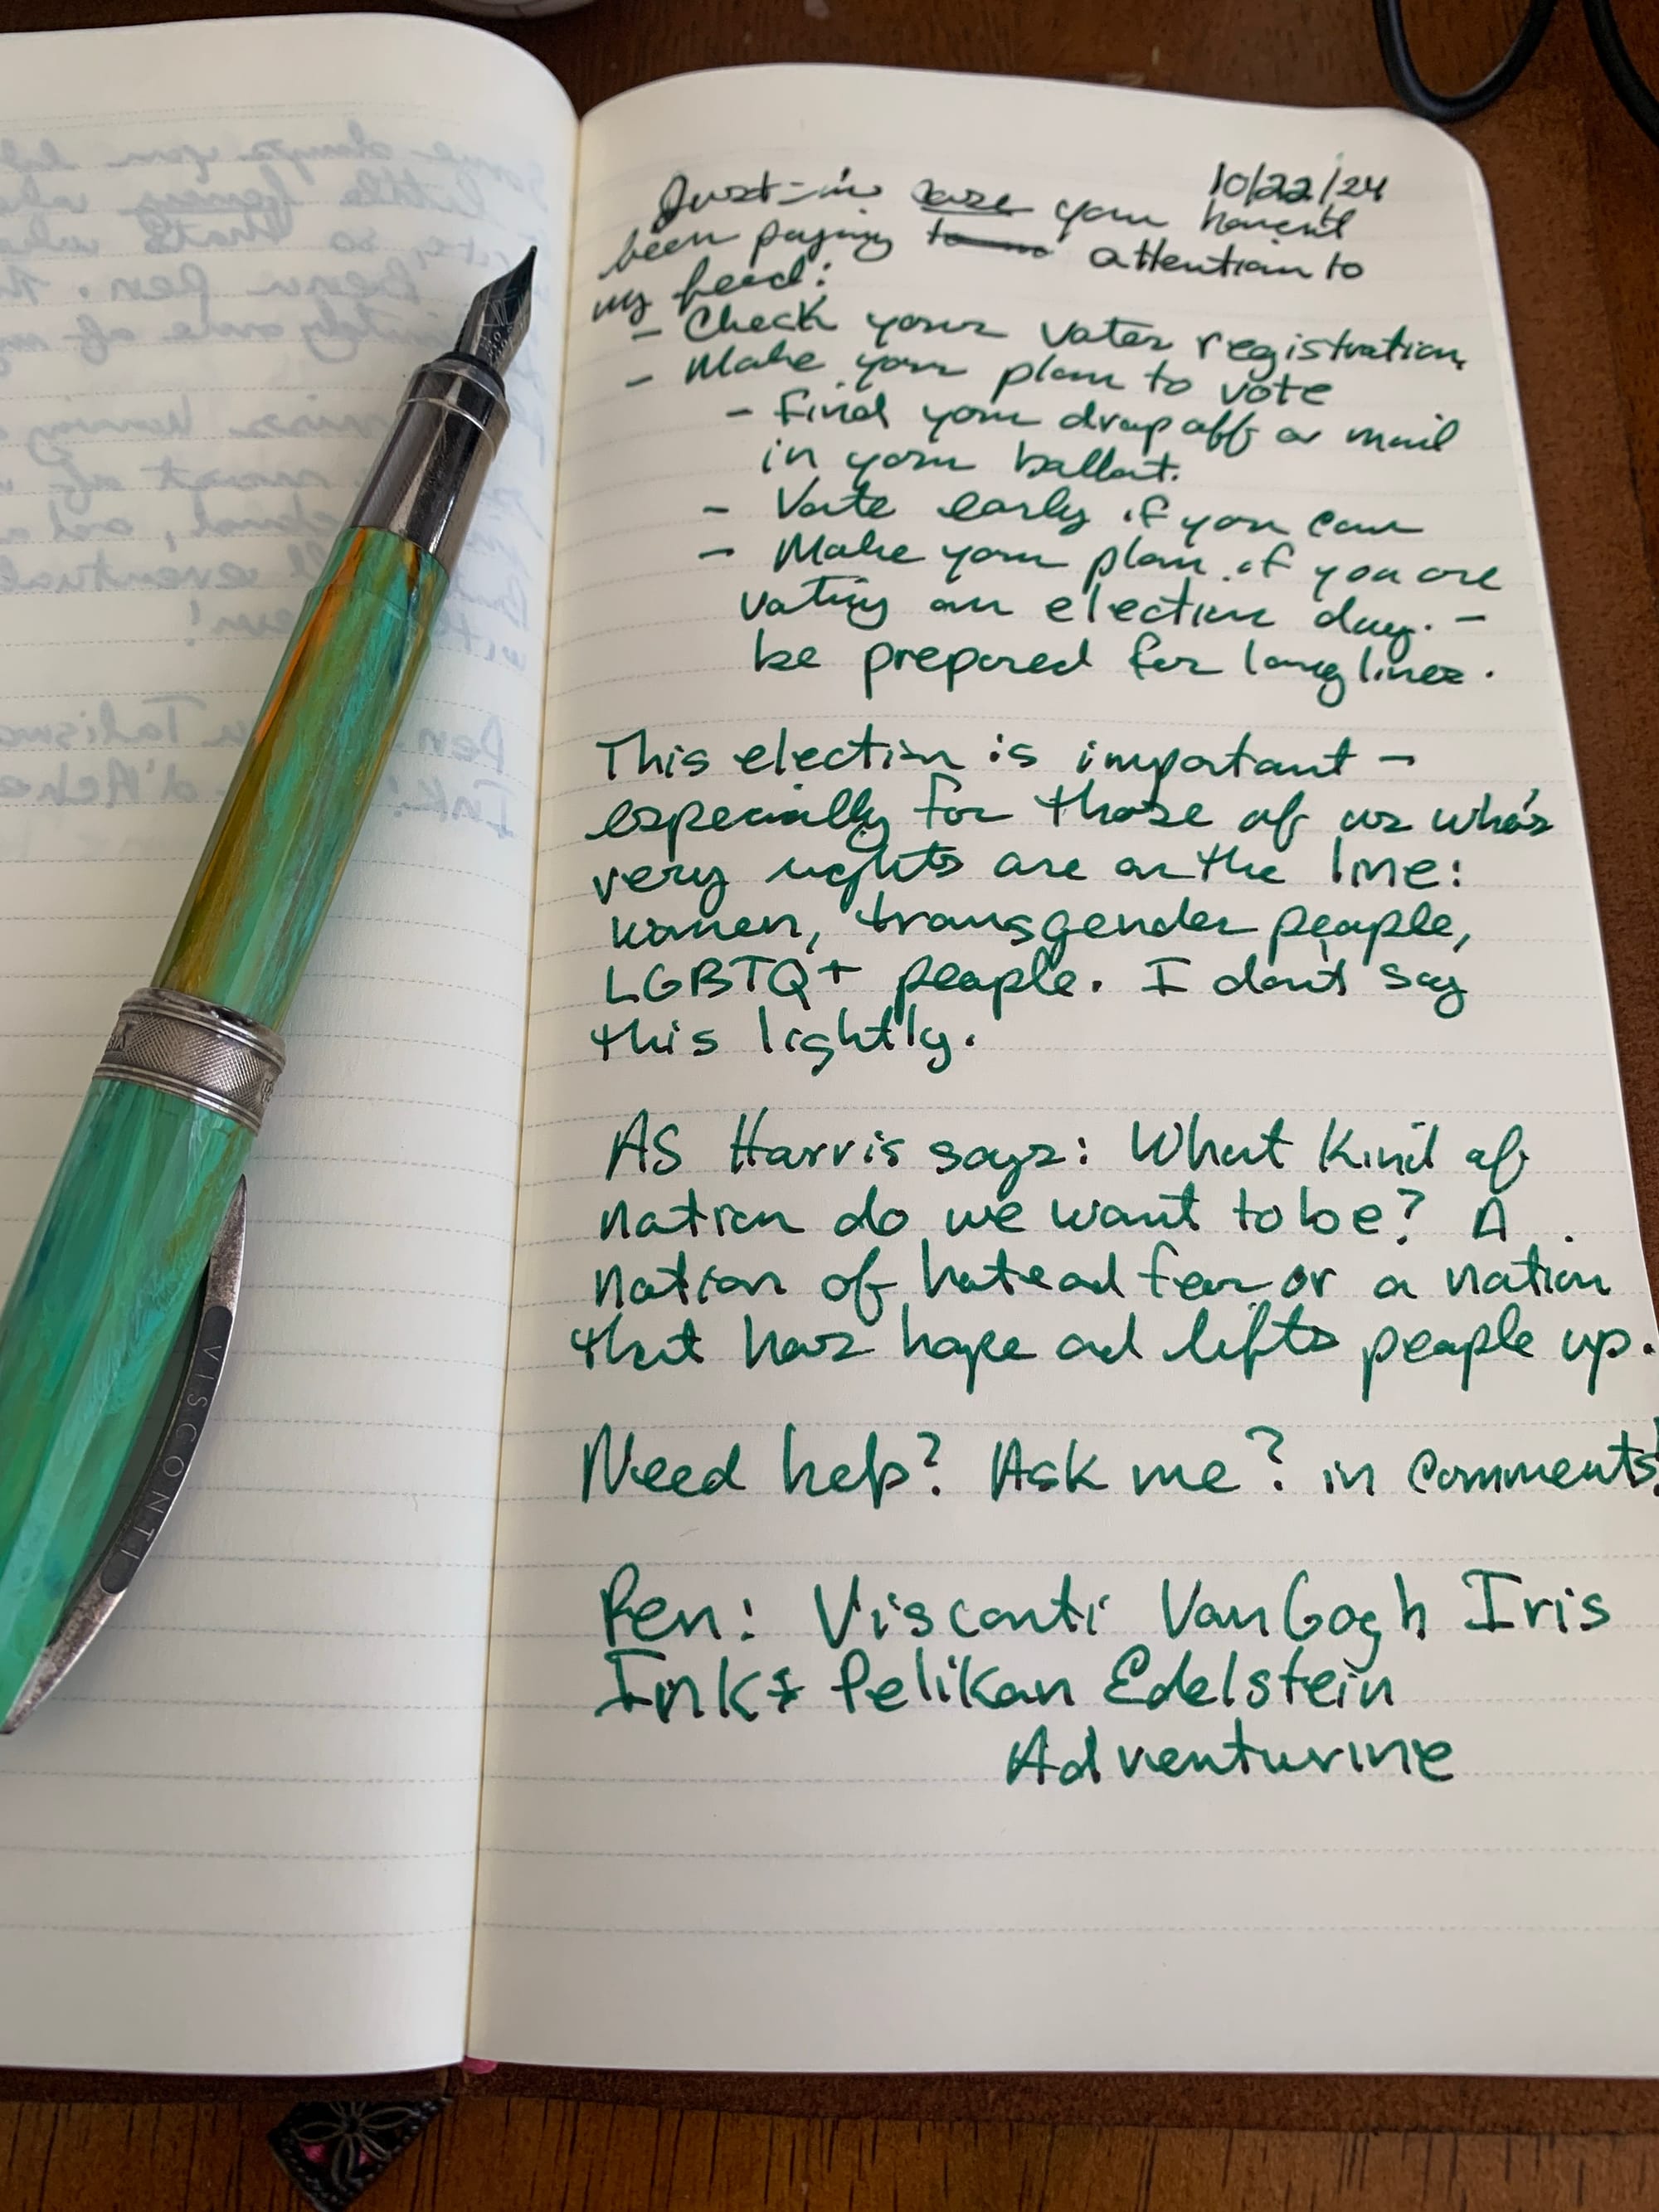 10/22/24
Just in case you haven't
been paying to attention to
my feed:
- Check your voter registration,
- Make your plan to vote
- Find your drop off or mail
in your ballot.
- Vote early if you can
- Make your plan if you are
voting on election day. -
be prepared for long lines.
This election is important -
especially for those of us who's
very rights are on the line:
women, transgender people,
LGBTQ+ people. I don't say
this lightly.
As Harris says: What kind of
nation do we want to be? A
nation of hate ad fear or a nation
that has hope ad lifts people up.
Need help? Ask me? in comments!
Pen: Visconti Van Gogh Iris
Ink: Pelikan Edelstein
Adventurine
VISCONTI